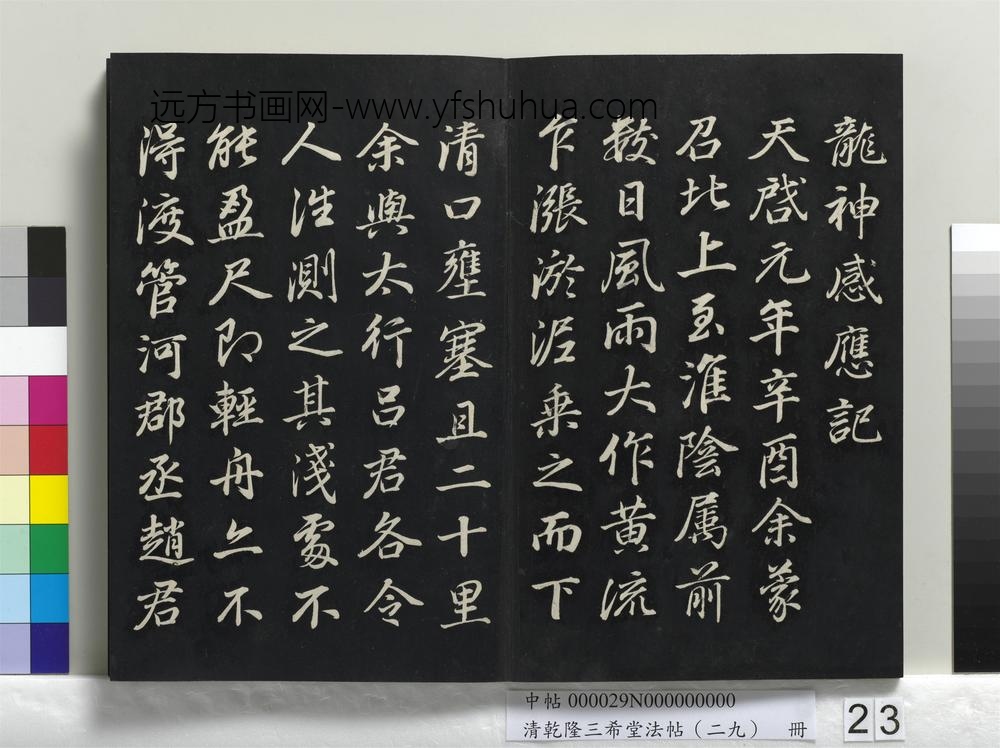 远方书画网-www.yfshuhua.com
龍神感應記
天啓元年辛酉余蒙
召北上至淮陰属前
數日風雨大作黄流
乍漲淤泥乗之而下
清口壅塞且二十里
余與太行吕君各令
人淮測之其淺處不
能盈尺即輕舟亦不
得渡管河郡丞趙君
中帖 000029N000000000
清乾隆三希堂法帖（二九） 冊
23